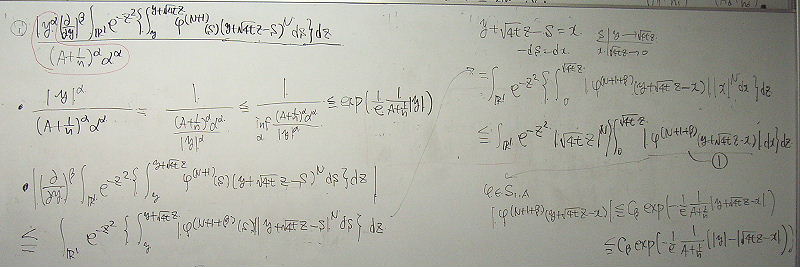 ① |y^α (∂/∂y)^β ∫_{ℝ¹} e^{-z²} { ∫_y^{y+√4t z} φ^{(N+1)}(s) (y+√4t z - s)^N ds } dz
(A+1/n)^α α^α
• |y|^α / (A+1/n)^α α^α = 1 / ((A+1/n)^α α^α / |y|^α) ≤ 1 / (inf_α (A+1/n)^α α^α / |y|^α) ≤ exp(1/e 1/(A+1/n) |y|)
• |(∂/∂y)^β ∫_{ℝ¹} e^{-z²} { ∫_y^{y+√4t z} φ^{(N+1)}(s) (y+√4t z - s)^N ds } dz|
≤ ∫_{ℝ¹} e^{-z²} { ∫_y^{y+√4t z} |φ^{(N+1+β)}(s)| |y+√4t z - s|^N ds } dz
y+√4t z - s = x
-ds = dx
s | y → y+√4t z
x | √4t z → 0
= ∫_{ℝ¹} e^{-z²} { ∫_0^{√4t z} |φ^{(N+1+β)}(y+√4t z - x)| |x|^N dx } dz
≤ ∫_{ℝ¹} e^{-z²} |√4t z|^N { ∫_0^{√4t z} |φ^{(N+1+β)}(y+√4t z - x)| dx } dz
①
φ∈S_{1,A}
|φ^{(N+1+β)}(y+√4t z - x)| ≤ C_β exp(-1/e 1/(A+1/n) |y+√4t z - x|)
≤ C_β exp(-1/e 1/(A+1/n) (|y| - |√4t z - x|))